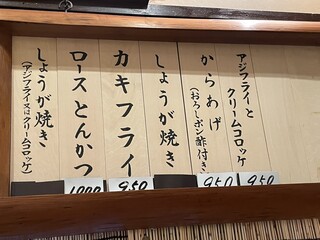 アジフライと
クリームコロッケ
950
からあげ
(おろしポン酢付き)
950
しょうが焼き
カキフライ
950
ロースとんかつ
1000
しょうが焼き
(アジフライ又はクリームコロッケ)